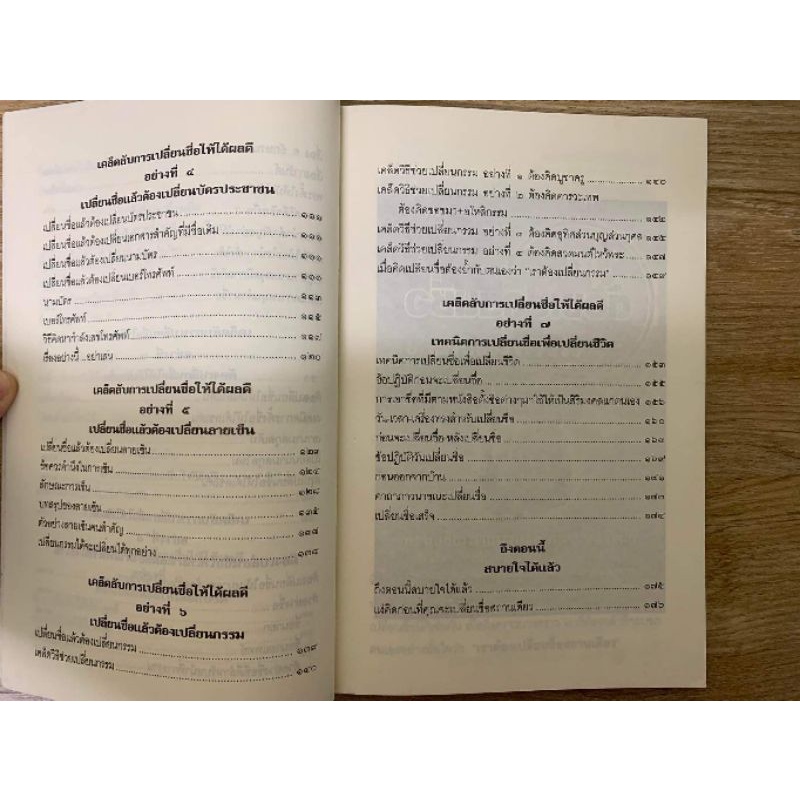 เคล็ดลับการเปลี่ยนชื่อให้ได้ผลดี
อย่างที่ ๔
เปลี่ยนชื่อแล้วต้องเปลี่ยนบัตรประชาชน
เปลี่ยนชื่อแล้วต้องเปลี่ยนบัตรประชาชน ๑๑๑
เปลี่ยนชื่อแล้วต้องเปลี่ยนเอกสารสำคัญที่มีชื่อเดิม ๑๑๑
เปลี่ยนชื่อแล้วต้องเปลี่ยนนามบัตร ๑๑๑
เปลี่ยนชื่อแล้วต้องเปลี่ยนเบอร์โทรศัพท์ ๑๑๑
นามบัตร ๑๑๓
เบอร์โทรศัพท์ ๑๑๕
วิธีคิดหากำลังเลขโทรศัพท์ ๑๑๗
เรื่องอย่างนี้...อย่าเล่น ๑๒๐
เคล็ดลับการเปลี่ยนชื่อให้ได้ผลดี
อย่างที่ ๕
เปลี่ยนชื่อแล้วต้องเปลี่ยนลายเซ็น
เปลี่ยนชื่อแล้วต้องเปลี่ยนลายเซ็น
ข้อควรคำนึงในการเซ็น ๑๒๔
ลักษณะการเซ็น ๑๒๘
บทสรุปของลายเซ็น ๑๓๕
ตัวอย่างลายเซ็นคนสำคัญ
เปลี่ยนกรรมได้จะเปลี่ยนได้ทุกอย่าง ๑๓๘
เคล็ดลับการเปลี่ยนชื่อให้ได้ผลดี
อย่างที่ ๖
เปลี่ยนชื่อแล้วต้องเปลี่ยนกรรม
เปลี่ยนชื่อแล้วต้องเปลี่ยนกรรม ๑๓๙
เคล็ดวิธีช่วยเปลี่ยนกรรม ๑๔๐
เคล็ดวิธีช่วยเปลี่ยนกรรม อย่างที่ ๑ ต้องคิดบูชาครู ๑๔๐
เคล็ดวิธีช่วยเปลี่ยนกรรม อย่างที่ ๒ ต้องคิดคารวะเทพ
ต้องคิดขอขมา+อโหสิกรรม ๑๔๒
เคล็ดวิธีช่วยเปลี่ยนกรรม อย่างที่ ๓ ต้องคิดอุทิศส่วนบุญส่วนกุศล ๑๔๕
เคล็ดวิธีช่วยเปลี่ยนกรรม อย่างที่ ๔ ต้องคิดสวดมนต์ไหว้พระ ๑๔๗
เมื่อคิดเปลี่ยนชื่อต้องย้ำกับตนเองว่า "เราต้องเปลี่ยนกรรม"
เคล็ดลับการเปลี่ยนชื่อให้ได้ผลดี
อย่างที่ ๗
เทคนิคการเปลี่ยนชื่อเพื่อเปลี่ยนชีวิต
เทคนิคการเปลี่ยนชื่อเพื่อเปลี่ยนชีวิต ๑๕๓
ข้อปฏิบัติก่อนจะเปลี่ยนชื่อ ๑๕๕
การเอาชื่อที่มีตามหนังสือตั้งชื่อต่างๆมาใช้ให้เป็นสิริมงคลแก่ตนเอง ๑๕๖
วัน-เวลา-เครื่องทรงสำหรับเปลี่ยนชื่อ ๑๖๐
ก่อนจะเปลี่ยนชื่อ-หลังเปลี่ยนชื่อ
ข้อปฏิบัติวันเปลี่ยนชื่อ
ก่อนออกจากบ้าน
คาถาภาวนาขณะเปลี่ยนชื่อ ๑๗๓
เปลี่ยนชื่อเสร็จ ๑๗๔
ถึงตอนนี้
สบายใจได้แล้ว
ถึงตอนนี้สบายใจได้แล้ว ๑๗๕
แง่คิดก่อนที่คุณจะเปลี่ยนชื่อสถานเดียว ๑๗๖